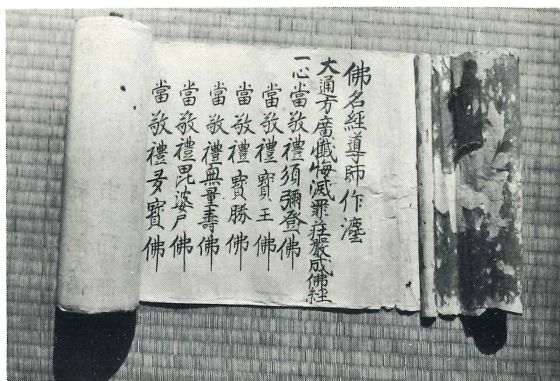 佛名經導師作法
大通方廣懺悔滅罪荘嚴成佛経
一心當敬禮須彌登佛
當敬禮寶王佛
當敬禮寶勝佛
當敬禮無量壽佛
當敬禮毘婆尸佛
當敬禮多寶佛